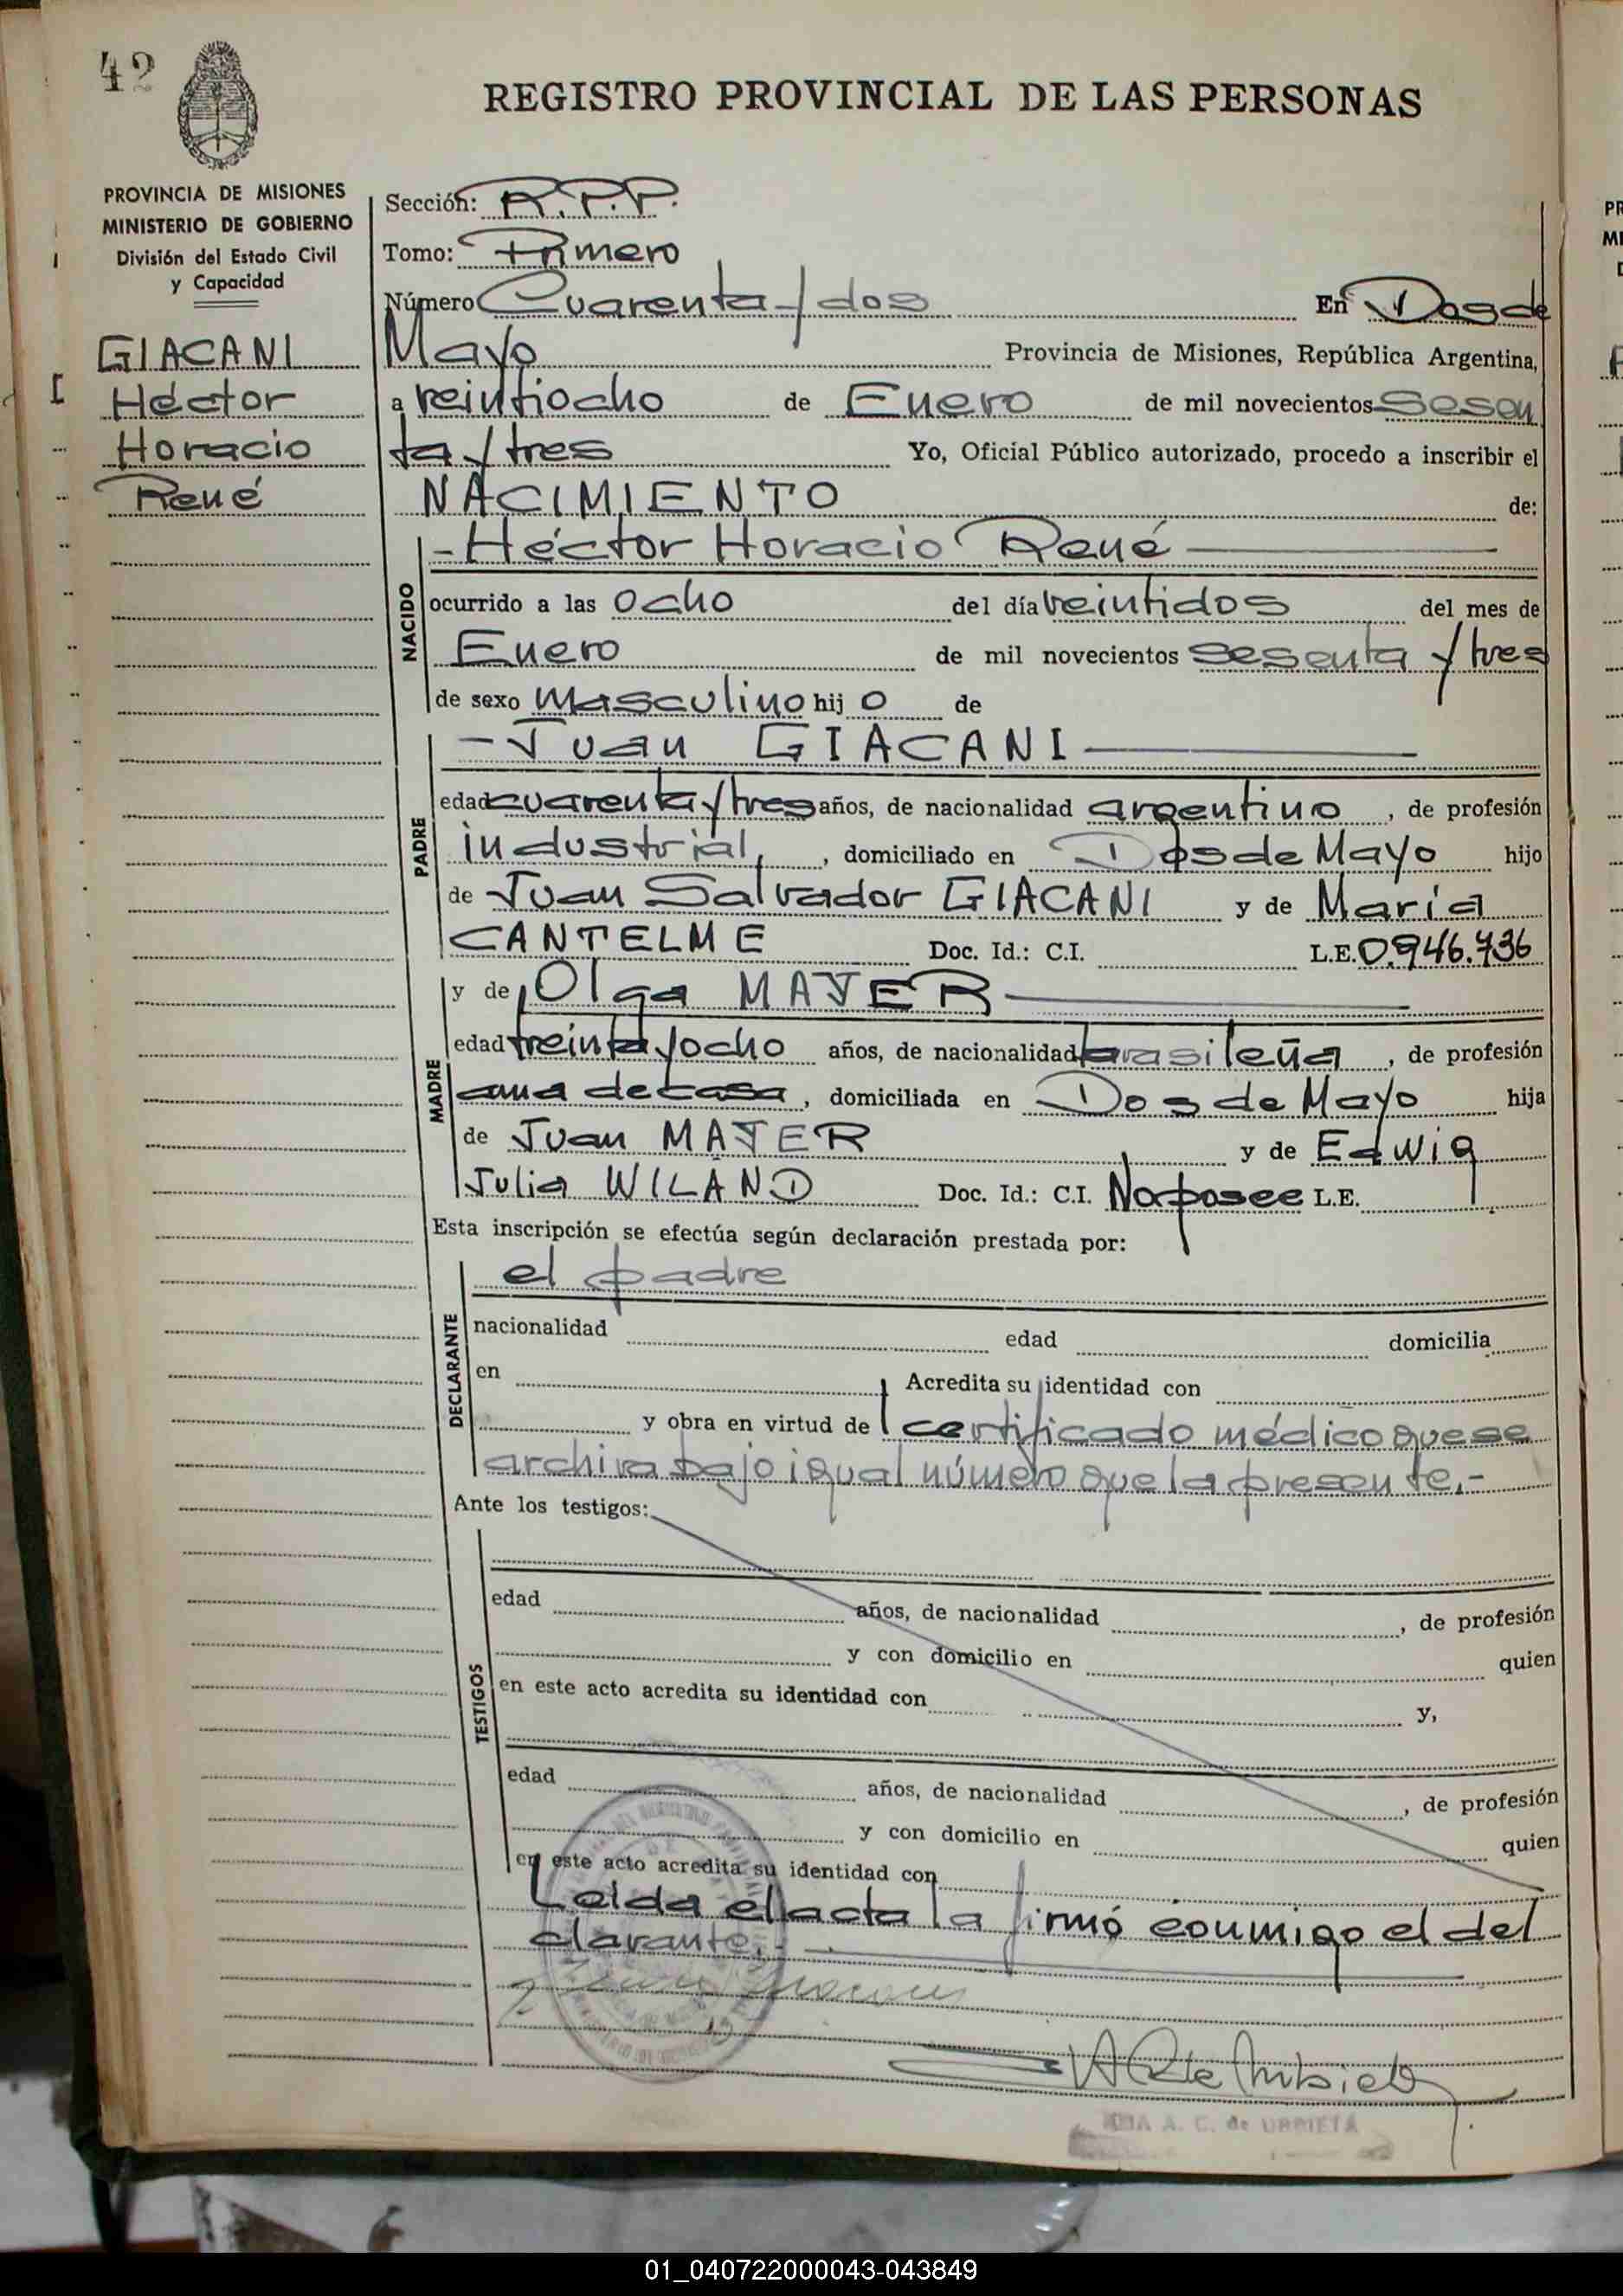 42
REGISTRO PROVINCIAL DE LAS PERSONAS
PROVINCIA DE MISIONES
MINISTERIO DE GOBIERNO
División del Estado Civil
y Capacidad
GIACANI
Héctor
Horacio
René
Sección: R.P.P.
Tomo: Primero
Número Cuarenta y dos En Dos de
Mayo Provincia de Misiones, República Argentina,
a veintiocho de Enero de mil novecientos Sesen
ta y tres Yo, Oficial Público autorizado, procedo a inscribir el
NACIMIENTO de:
NACIDO
- Héctor Horacio René
ocurrido a las ocho del día veintidos del mes de
Enero de mil novecientos sesenta y tres
de sexo masculino hij o de
PADRE
- Juan GIACANI
edad cuarenta y tres años, de nacionalidad argentino , de profesión
industrial , domiciliado en Dos de Mayo hijo
de Juan Salvador GIACANI y de María
CANTELME Doc. Id.: C.I. L.E. 0.946.736
MADRE
y de Olga MAJER
edad treinta y ocho años, de nacionalidad brasileña , de profesión
ama de casa , domiciliada en Dos de Mayo hija
de Juan MAJER y de Edwig
Julia WILAND Doc. Id.: C.I. No posee L.E.
Esta inscripción se efectúa según declaración prestada por:
DECLARANTE
el padre
nacionalidad edad domicilia
en Acredita su identidad con
y obra en virtud de certificado médico que se
archiva bajo igual número que la presente.-
Ante los testigos:
TESTIGOS
edad años, de nacionalidad , de profesión
y con domicilio en quien
en este acto acredita su identidad con y,
edad años, de nacionalidad , de profesión
y con domicilio en quien
en este acto acredita su identidad con
Leída el acta la firmó conmigo el del
clarante.-
A. C. de URRIETA
01_040722000043-043849